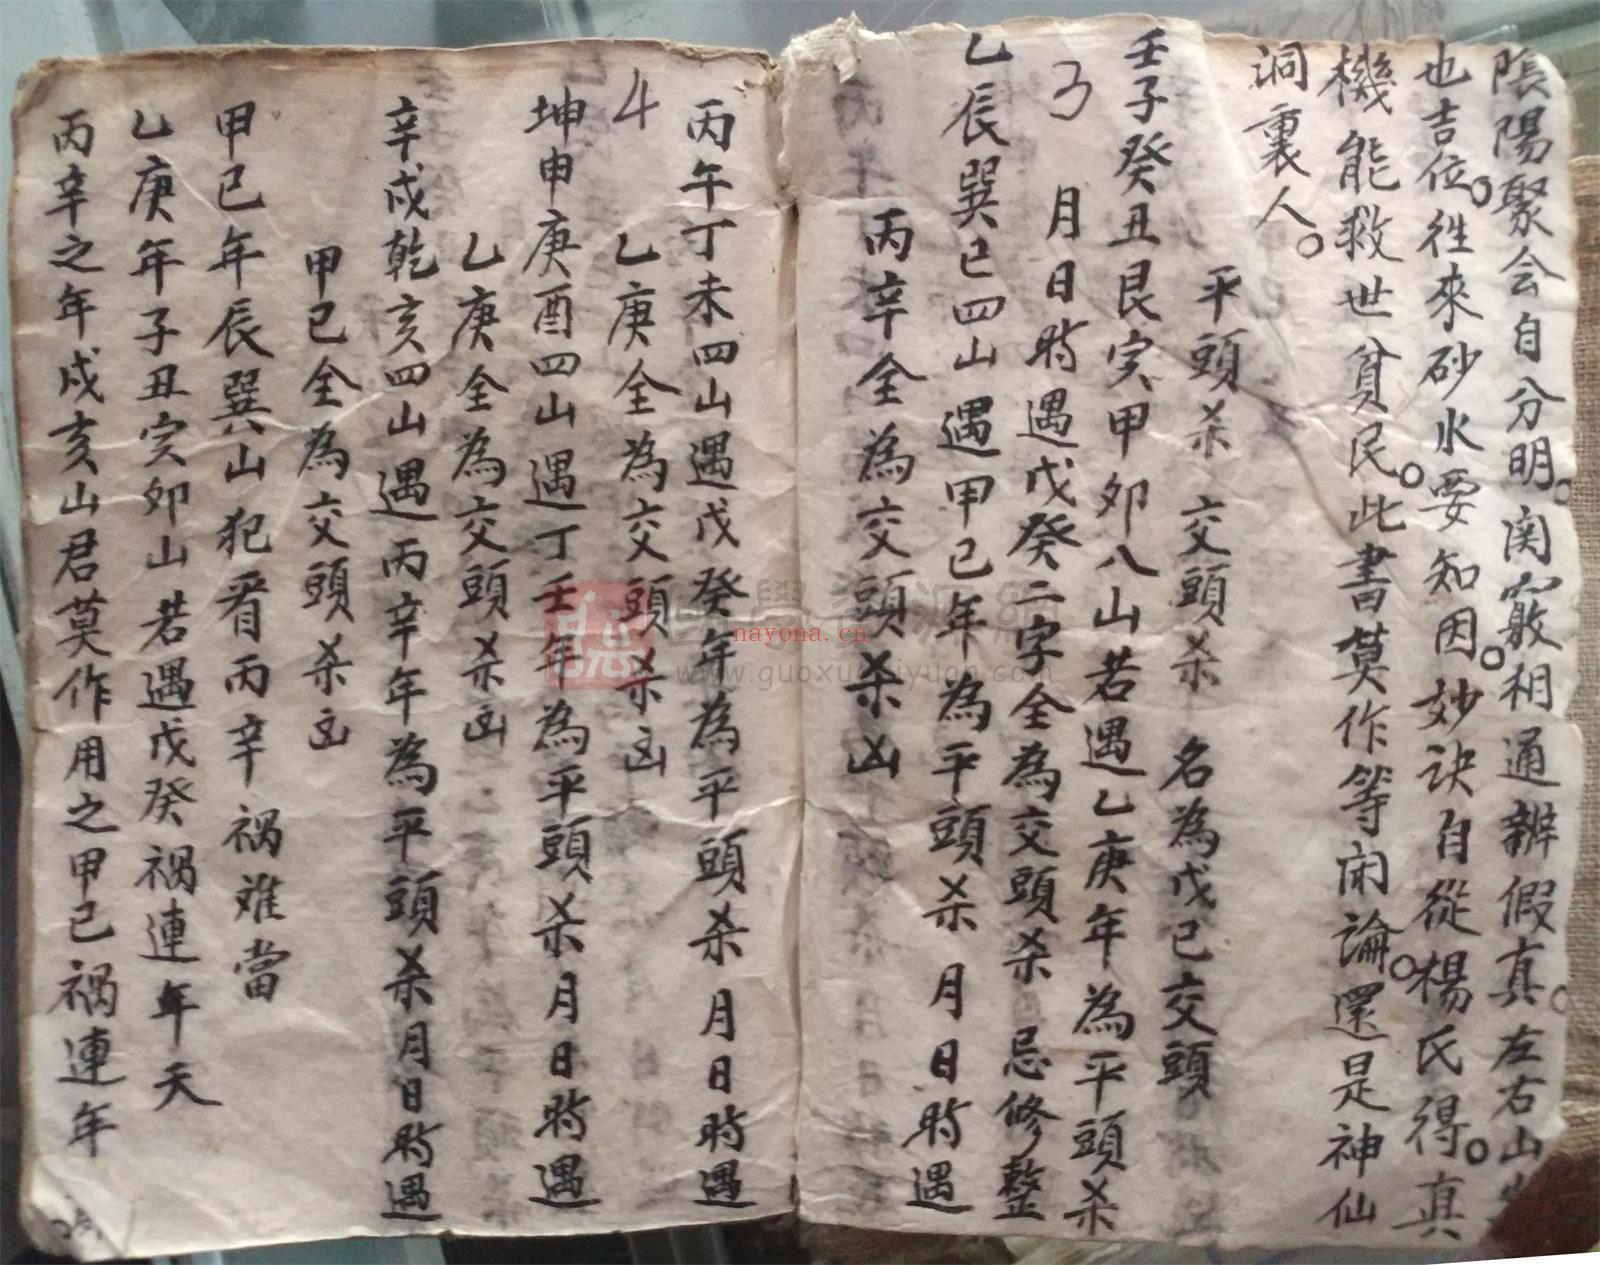 陰陽聚会自分明。関竅相通辨假真。左右山
也吉位。往來砂水要知因。妙訣自從楊氏得。真
機能救世貧民。此書莫作等闲論。還是神仙
洞裏人。
平頭杀 交頭杀 名為戊己交頭
壬子癸丑艮寅甲卯八山若遇乙庚年為平頭杀
3 月日時遇戊癸二字全為交頭杀 忌修整
乙辰巽巳四山遇甲己年為平頭杀 月日時遇
丙辛全為交頭杀凶
丙午丁未四山遇戊癸年為平頭杀 月日時遇
4 乙庚全為交頭杀凶
坤申庚酉四山遇丁壬年為平頭杀月日時遇
乙庚全為交頭杀凶
辛戌乾亥四山遇丙辛年為平頭杀月日時遇
甲己全為交頭杀凶
甲己年辰巽山犯着丙辛祸难當
乙庚年子丑寅卯山若遇戊癸祸連年天
丙辛之年戌亥山君莫作用之甲己祸連年
國學資源網
nayona.cn
www.guoxueziyuan.com